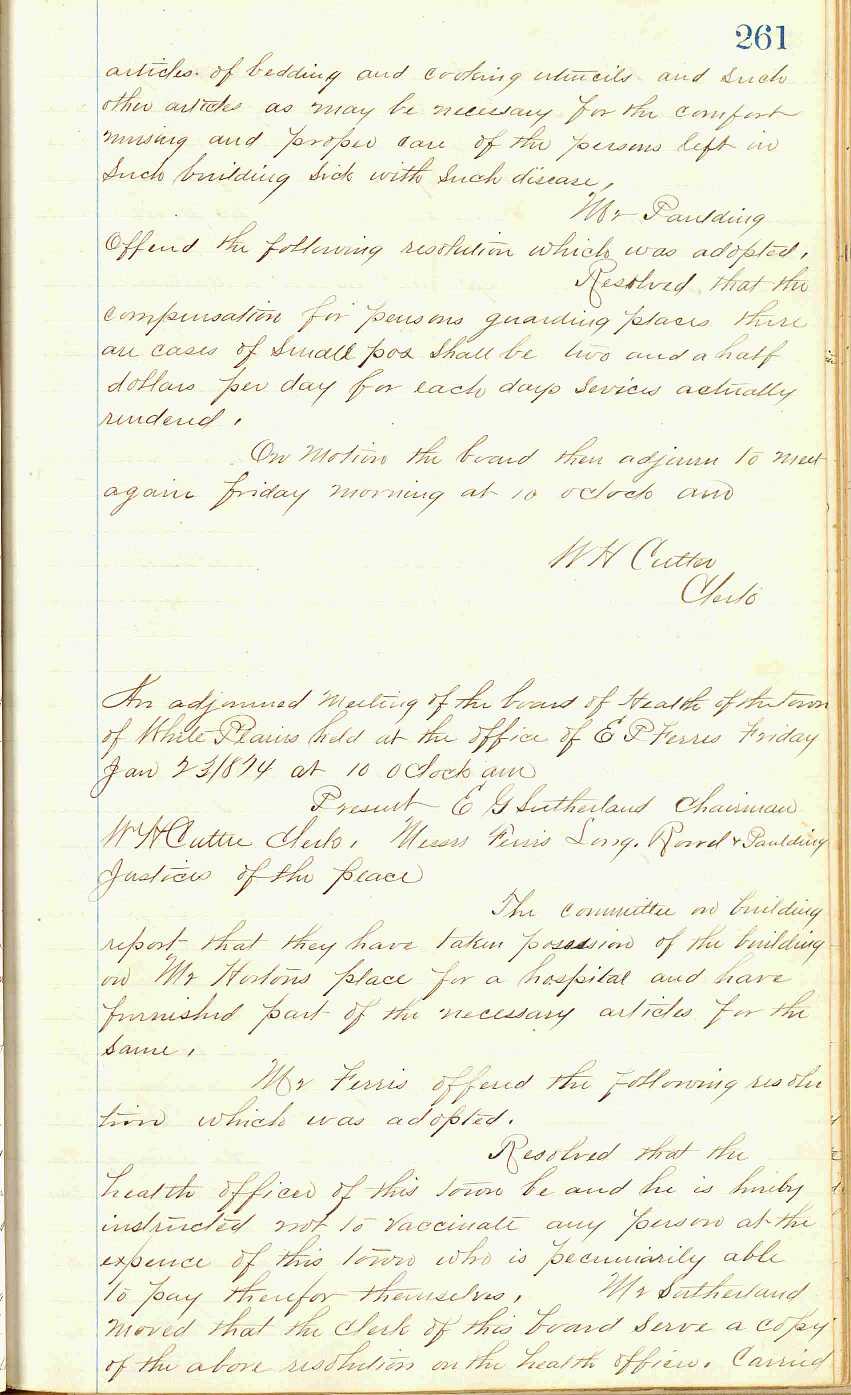 261
articles of bedding and cooking utencils and such
other articles as may be necessary for the comfort
nursing and proper care of the persons left in
Such building Sick with Such disease,
Mr Paulding
Offerd the following resolution which was adopted.
Resolved that the
compensation for persons guarding places there
are cases of Small pox Shall be two and a half
dollars per day for each days Services actually
renderd.
On Motion the board then adjourn to meet
again friday morning at 10 oclock am
W H Cutter
Clerk
An adjourned Meeting of the board of Health of the town
of White Plains held at the office of E P Ferris Friday
Jan 23/874 at 10 oclock am
Present E G Sutherland Chairman
W H Cutter Clerk, Messrs Ferris Long, &  Paulding
Justices of the peace
The committee on building
report that they have taken possession of the building
on Mr Hortons place for a hospital and have
furnished part of the necessary articles for the
Same.
Mr Ferris offerd the following resolu
tion which was adopted.
Resolved that the
health officer of this town be and he is hereby
instructed not to vaccinate any person at the
expence of this town who is pecuniarily able
to pay therefor themselves. Mr Sutherland
moved that the Clerk of this board Serve a copy
of the above resolution on the health officer. Carried